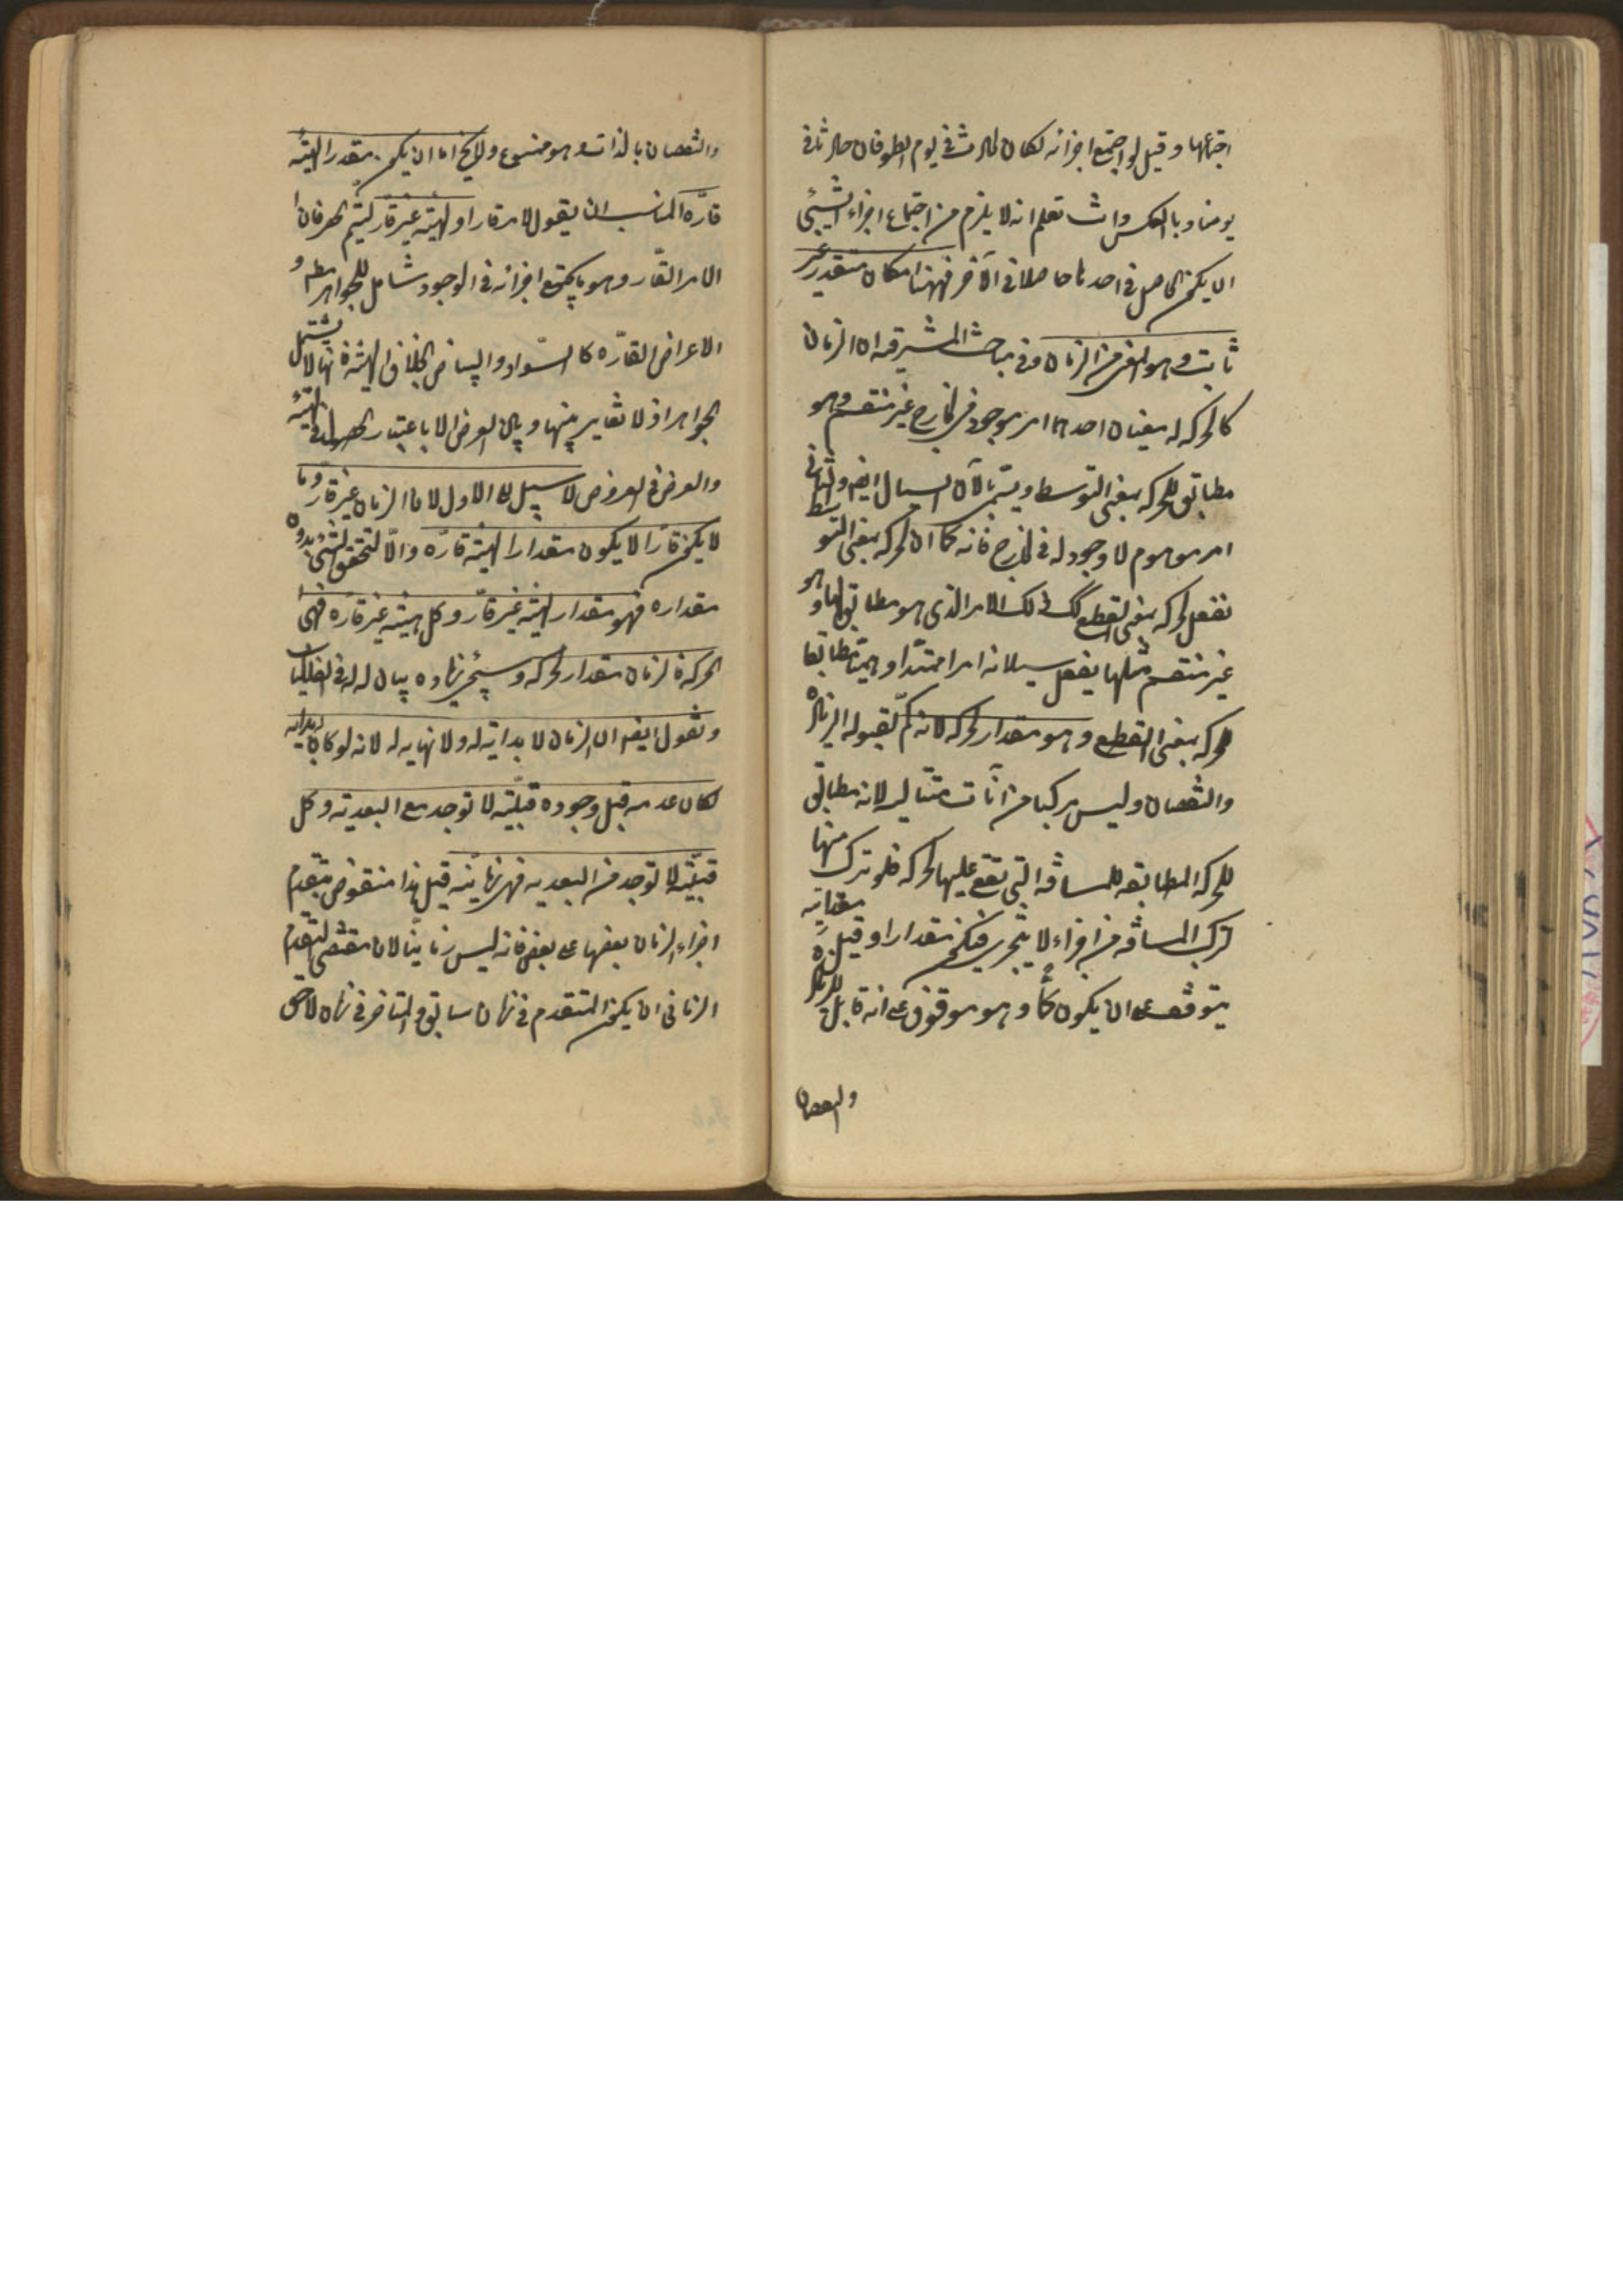 اجتماعها وقيل لو اجتمع اجزائه لكان الحادث في يوم الطوفان حادثا في
يومنا وبالعكس وانت تعلم انه لا يلزم من اجتماع اجزاء الشيئ
ان يكون الحاصل في احدها حاصلا في الآخر فههنا امكان متقدر غير
ثابت وهو المعنى من الزمان وفي مباحث المشرقيه ان الزمان
كالحركه له معنيان احدهما امر موجود في الخارج غير منقسم وهو
مطابق للحركه بمعنى التوسط ويسمى بالآن السيال ايضا والثاني
امر موهوم لا وجود له في الخارج فانه كما ان الحركه بمعنى التوسط
تفعل الحركه بمعنى القطع كك ذلك الامر الذي هو مطابق لها وهو
غير منقسم مثلها يفعل بسيلانه امرا ممتدا وهميا مطابقا
للحركه بمعنى القطع وهو مقدار الحركه لانه كمّ لقبوله الزيادة
والنقصان وليس مركبا من آنات متتاليه لانه مطابق
للحركه المطابقه للمسافه التي تقع عليها الحركه فلو تركب منها
لتركب المسافه من اجزاء لا يتجزى فيكون مقدارا وقيل مقداريته
يتوقف على ان يكون كمّا وهو موقوف على انه قابل للزيادة
والنقصان
والنقصان بالذات وهو ممنوع ولا يخ اما ان يكون مقدر الهيئه
قارّه المناسب ان يقول لامر قار او لهيئه غير قار ليتم الحصر فان
الامر القّار وهو ما يجتمع اجزائه في الوجود شامل للجواهر مطه و
الاعراض القارّه كالسّواد والبياض بخلاف الهيئة فانها لا يشتمل
الجواهر اذ لا تغاير بينها وبين العرض الا باعتبار الحصول في الهيئة
والعرض في العروض لا سبيل الى الاول لان الزمان غير قارّ وما
لا يكون قارّا لا يكون مقدارا لهيئه قارّه والّا لتحقق الشيئ بدون
مقداره فهو مقدار لهيئه غير قارّ وكل هيئه غير قاره فهى
الحركة فالزمان مقدار الحركه وسيجيئ زياده بيان له في الفلكيات
ونقول ايضا ان الزمان لا بدايه له ولا نهايه له لانه لو كان له بدايه
لكان عدمه قبل وجوده قبليّه لا توجد مع البعديه وكل
قبليّة لا توجد مع البعديه فهى زمانيّه قيل هذا منقوض بتقدم
اجزاء الزمان بعضها على بعض فانه ليس زمانيّا لان مقتضى التقدم
الزمانى ان يكون المتقدم في زمان سابق والمتاخر في زمان لاحق